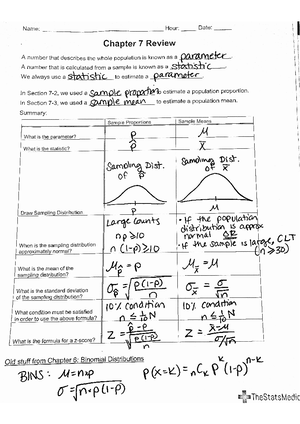 Name: Hour: Date:
Chapter 7 Review
A number that describes the whole population is known as a parameter
A number that is calculated from a sample is known as a statistic
We always use a statistic to estimate a parameter
In Section 7-2, we used a sample proportion to estimate a population proportion.
In Section 7-3, we used a sample mean to estimate a population mean.
Summary:
Sample Proportions Sample Means
What is the parameter? p μ
What is the statistic? p̂ x̄
Sampling Dist. of p̂ Sampling Dist. of x̄
Draw Sampling Distribution
When is the sampling distribution approximately normal? Large Counts np ≥ 10 n(1-p) ≥ 10 • If the population distribution is approx normal OR • if the sample is large, CLT (n ≥ 30)
What is the mean of the sampling distribution? μp̂ = p μx̄ = μ
What is the standard deviation of the sampling distribution? σp̂ = √(p(1-p)/n) σx̄ = σ/√n
What condition must be satisfied in order to use the above formula? 10% condition n ≤ 1/10 N 10% condition n ≤ 1/10 N
What is the formula for a z-score? z = (p̂ - p)/√(p(1-p)/n) z = (x̄ - μ)/(σ/√n)
Old stuff from Chapter 6: Binomial Distributions
BINS: μ = n×p P(x=k) = nCk p^k (1-p)^n-k
σ = √n·p(1-p)
TheStatsMedic